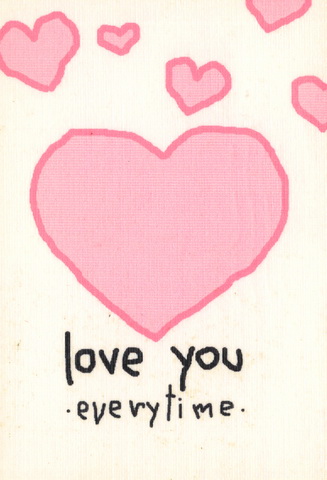 love you
·everytime·